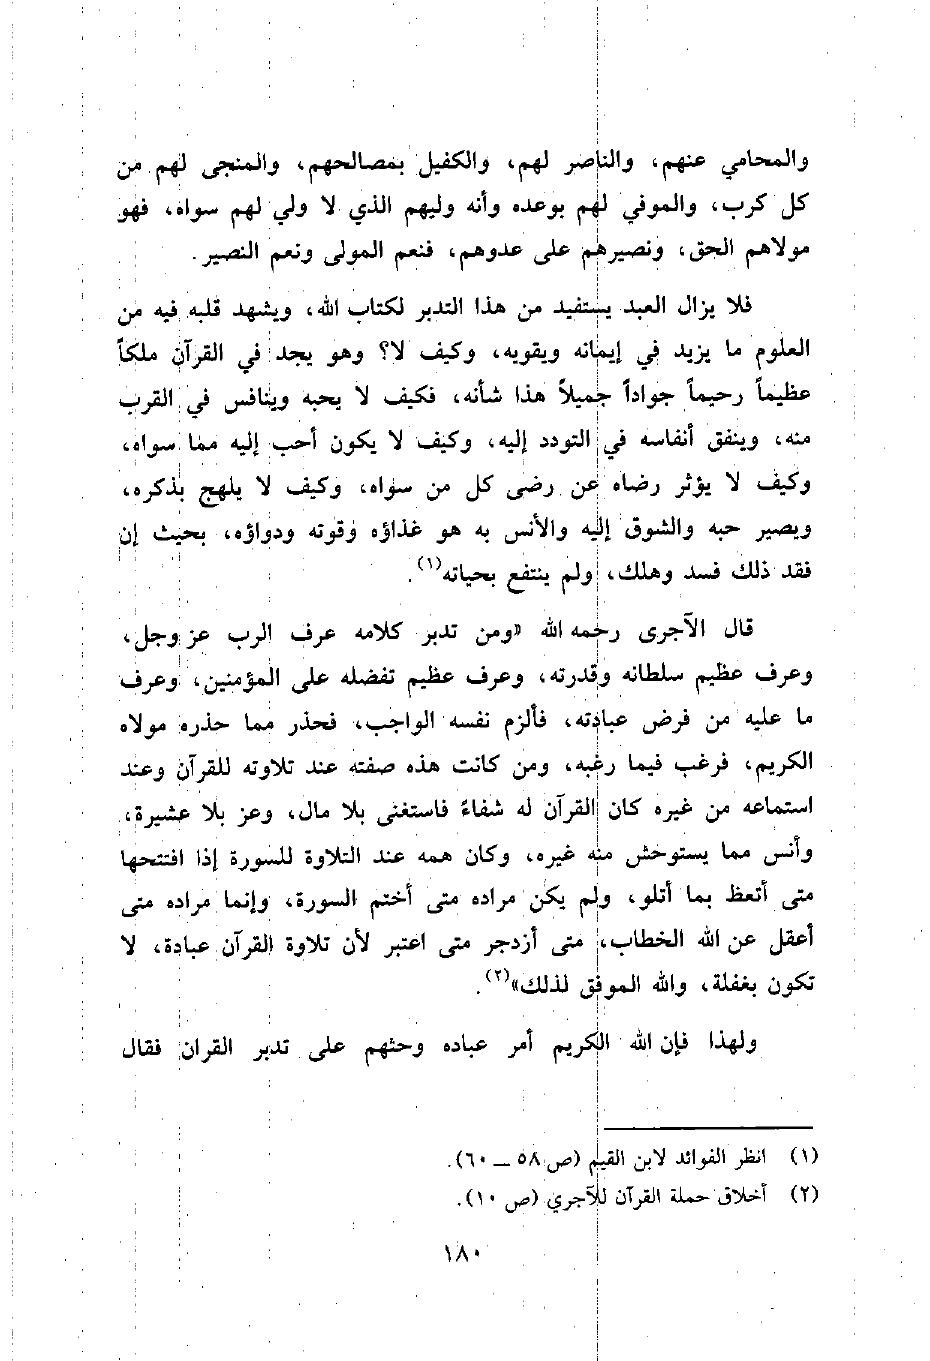 والمحامي عنهم، والناصر لهم، والكفيل بمصالحهم، والمنجى لهم من
كل كرب، والموفي لهم بوعده وأنه وليهم الذي لا ولي لهم سواه، فهو
مولاهم الحق، ونصيرهم على عدوهم، فنعم المولى ونعم النصير.
فلا يزال العبد يستفيد من هذا التدبر لكتاب الله، ويشهد قلبه فيه من
العلوم ما يزيد في إيمانه ويقويه، وكيف لا؟ وهو يجد في القرآن ملكاً
عظيماً رحيماً جواداً جميلاً هذا شأنه، فكيف لا يحبه وينافس في القرب
منه، وينفق أنفاسه في التودد إليه، وكيف لا يكون أحب إليه مما سواه،
وكيف لا يؤثر رضاه عن رضى كل من سواه، وكيف لا يلهج بذكره،
ويصير حبه والشوق إليه والأنس به هو غذاؤه وقوته ودواؤه، بحيث إن
فقد ذلك فسد وهلك، ولم ينتفع بحياته(١).
قال الآجرى رحمه الله «ومن تدبر كلامه عرف الرب عز وجل،
وعرف عظيم سلطانه وقدرته، وعرف عظيم تفضله على المؤمنين، وعرف
ما عليه من فرض عبادته، فألزم نفسه الواجب، فحذر مما حذره مولاه
الكريم، فرغب فيما رغبه، ومن كانت هذه صفته عند تلاوته للقرآن وعند
استماعه من غيره كان القرآن له شفاءً فاستغنى بلا مال، وعز بلا عشيرة،
وأنس مما يستوحش منه غيره، وكان همه عند التلاوة للسورة إذا افتتحها
متى أتعظ بما أتلو، ولم يكن مراده متى أختم السورة، وإنما مراده متى
أعقل عن الله الخطاب، متى أزدجر متى اعتبر لأن تلاوة القرآن عبادة، لا
تكون بغفلة، والله الموفق لذلك»(٢).
ولهذا فإن الله الكريم أمر عباده وحثهم على تدبر القران فقال
(١) انظر الفوائد لابن القيم (ص ٥٨ ــ ٦٠).
(٢) أخلاق حملة القرآن للآجري (ص ١٠).
١٨٠